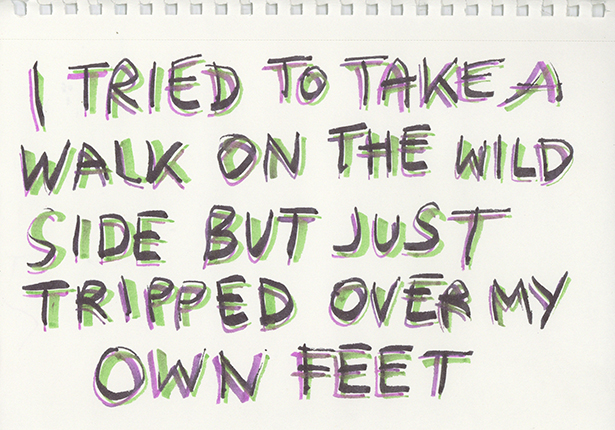 I TRIED TO TAKE A
WALK ON THE WILD
SIDE BUT JUST
TRIPPED OVER MY
OWN FEET